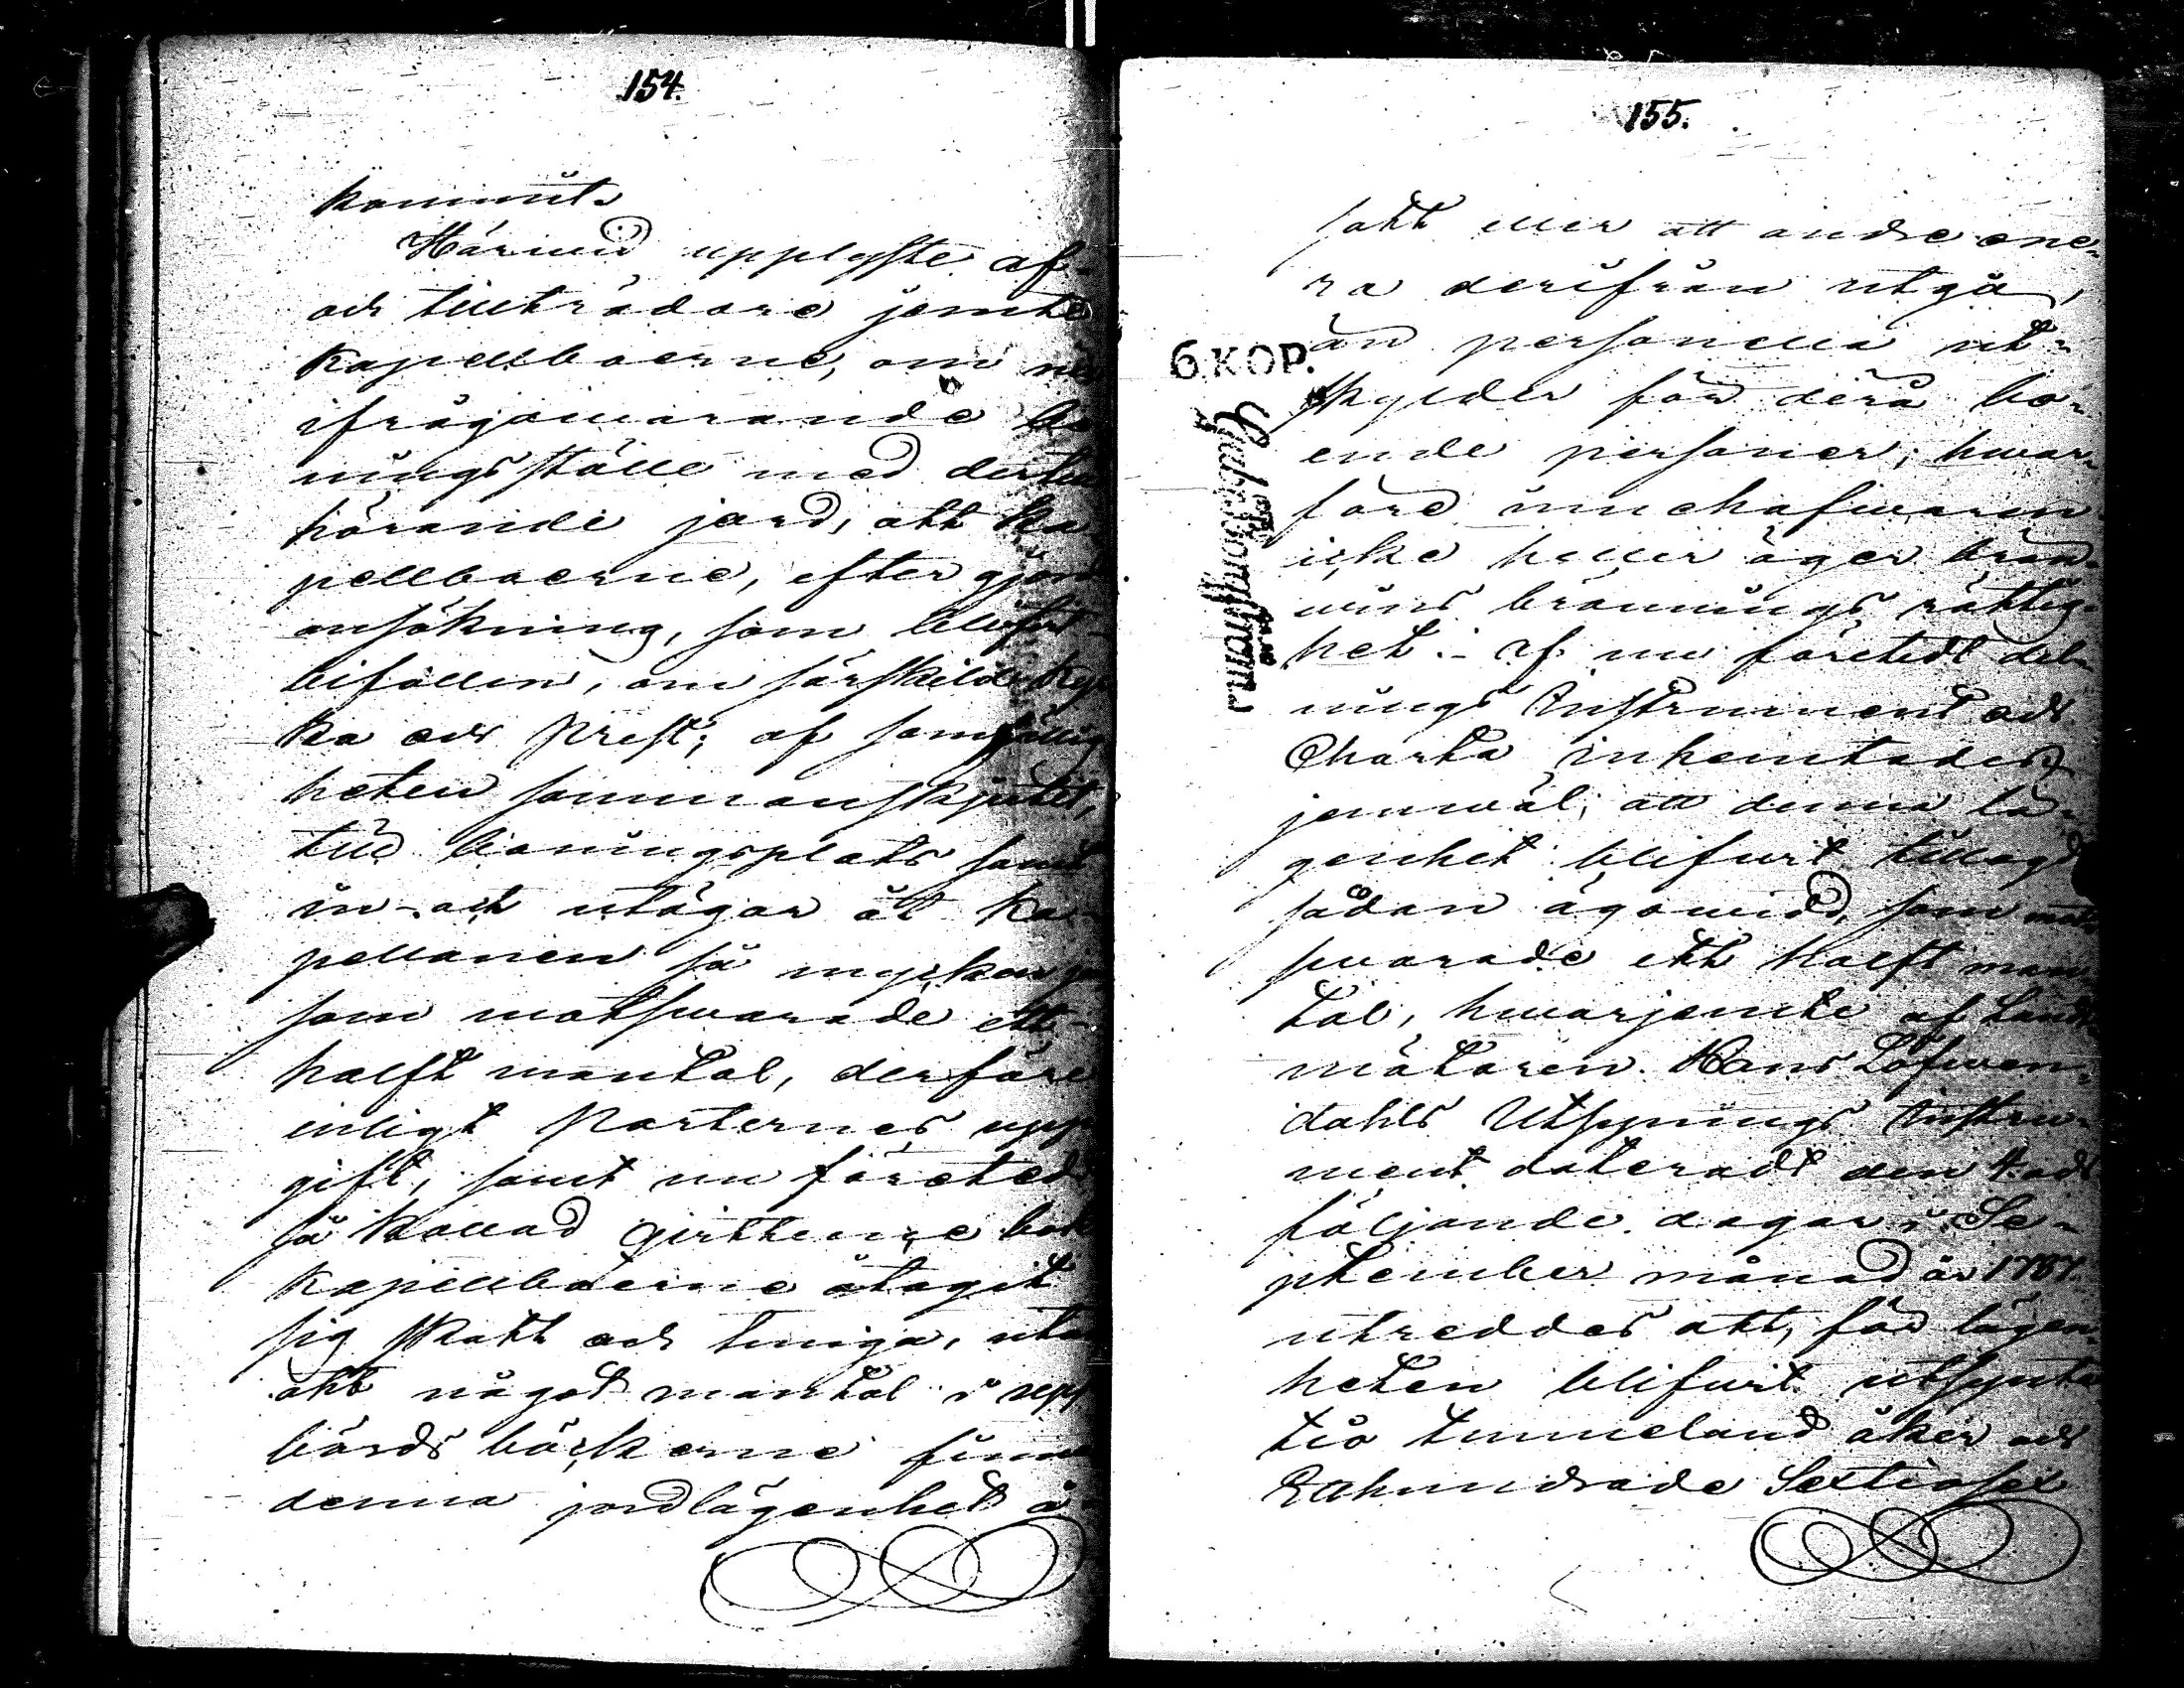 154.
kommit.
Härwid upplyste af-
och tillträdare jemte
Kapellboerne, om nu
ifrågawarande bo
ningsställe med dertill
hörande jord, att Ka
pellboerne, efter gjord
ansökning, som blifwit
bifallen, om särskild kyr
ka och Prest, af samfällig
heten sammanskjutit,
till boningsplats samt
in- och utägor åt Ka-
pellanen så mycken jor
som motswarade ett
halft mantal, derföre
enligt Parternes upp
gift, samt nu företed
så kallad Girttenne bok
Kapellboerne åtagit
sig skatt och tunga, utan
att något mantal i upp
börds böckerne finnes
denna jordlägenhet å
155.
satt eller att andre one-
ra derifrån utgå,
än personella ut-
skylder för derå bo-
ende personer; hwar-
före innehafwaren
icke heller äger brän
wins bränings rättig
het. Af nu företedt del-
nings Instrument och
Charta inhemtades
jemwäl, att denna lä-
genhet blifwit tillagd
sådan ägowidd, som mot
swarade ett halft man
tal, hwarjemte af Landt
mätaren Hans Löfwen-
dahls Utsynings Instru-
ment dateradt den 4 och
följande dagar i Se-
ptember månad år 1757.
utreddes att, för lägen-
heten blifwit utsynte
tio tunneland åker och
Etthundrade Sextiosex
6 KOP.